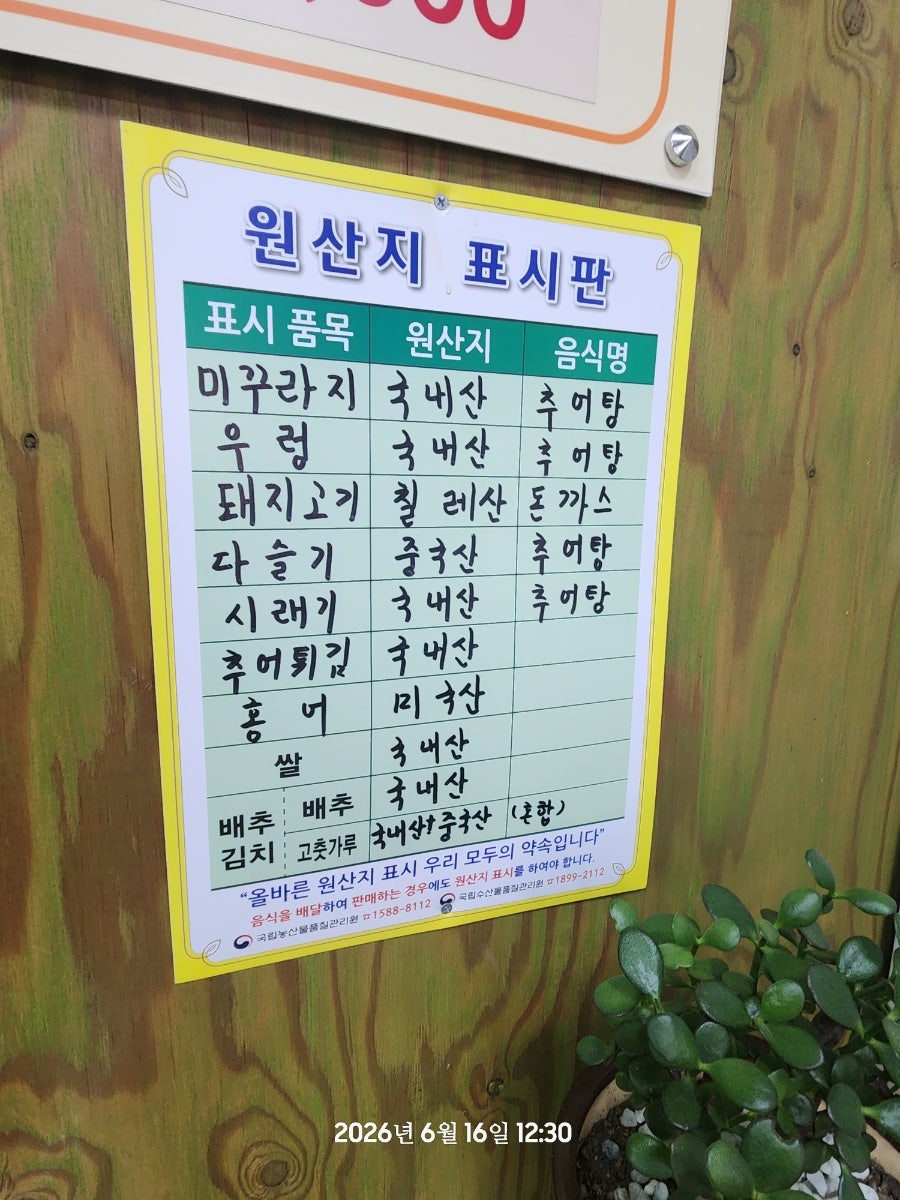 원산지 표시판
표시 품목 원산지 음식명
미꾸라지 국내산 추어탕
우렁 국내산 추어탕
돼지고기 칠레산 돈까스
다슬기 중국산 추어탕
시래기 국내산 추어탕
추어튀김 국내산
홍어 미국산
쌀 국내산
배추김치 배추 국내산
고춧가루 국내산+중국산 (혼합)
"올바른 원산지 표시 우리 모두의 약속입니다"
음식을 배달하여 판매하는 경우에도 원산지 표시를 하여야 합니다.
국립농산물품질관리원 ☎1588-8112 국립수산물품질관리원 ☎1899-2112
2026년 6월 16일 12:30